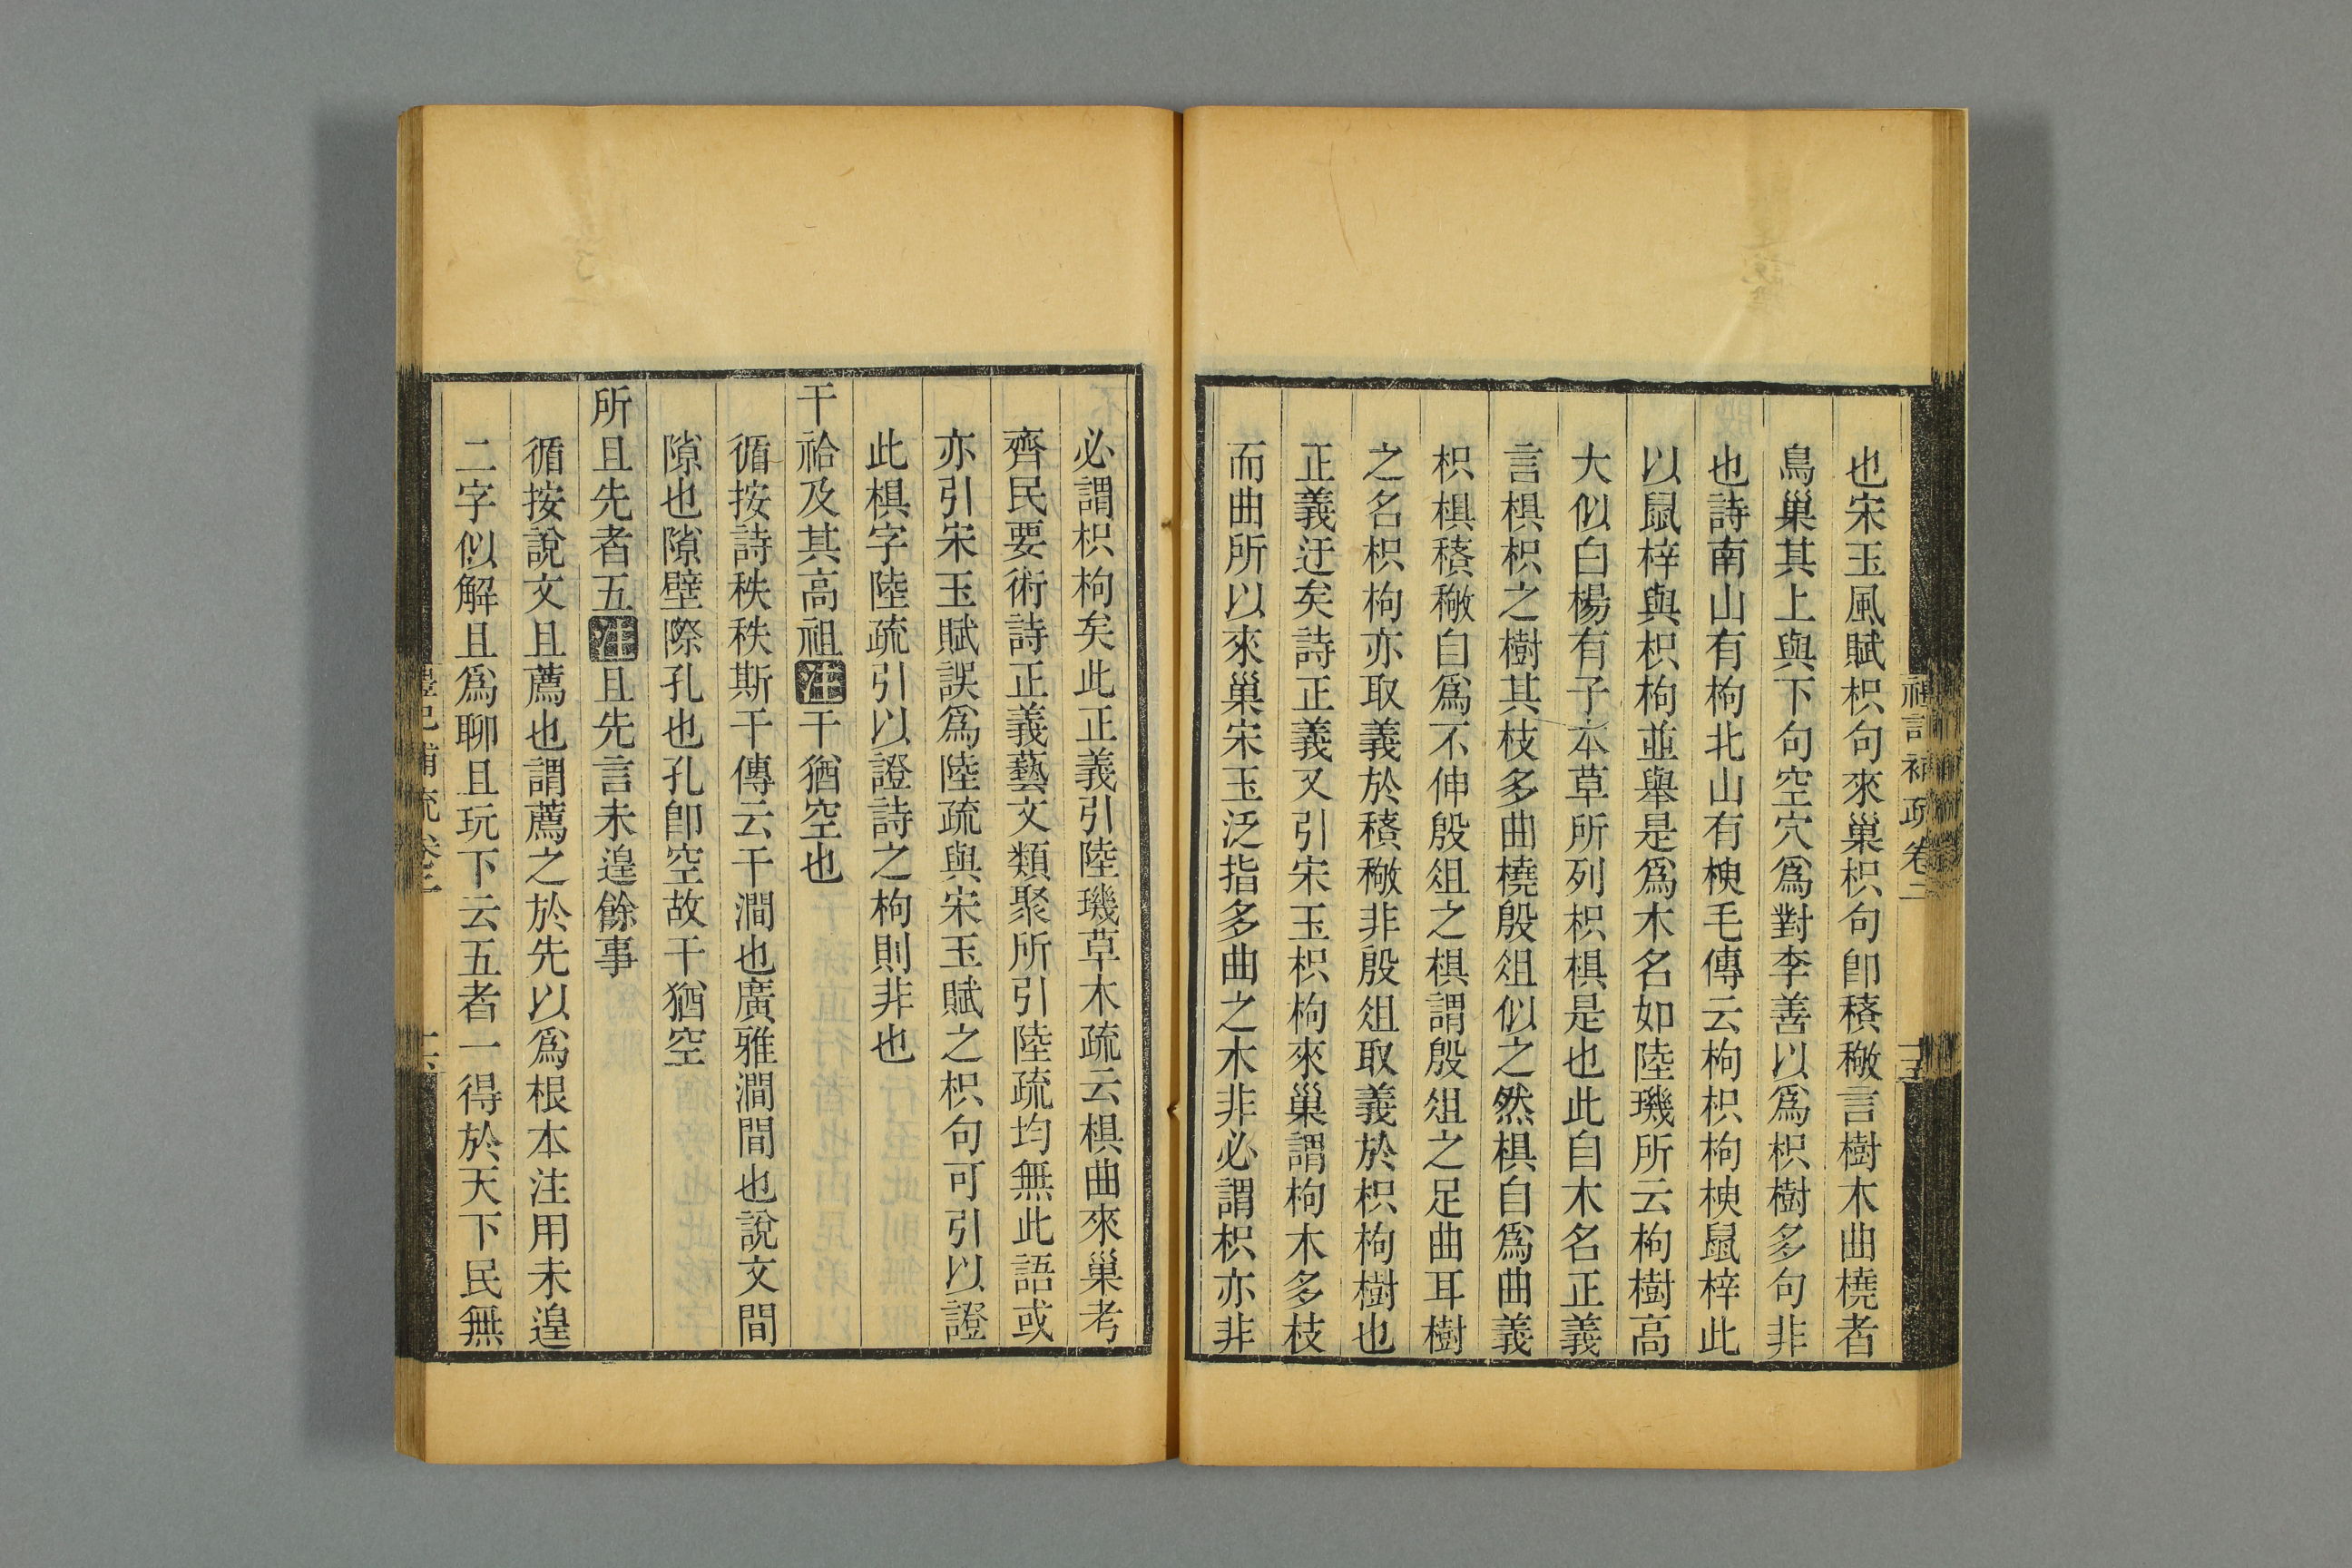 也宋玉風賦枳句來巢枳句卽𥠻𥡴言樹木曲橈者
鳥巢其上與下句空穴爲對李善以爲枳樹多句非
也詩南山有枸北山有楰毛傳云枸枳枸楰鼠梓此
以鼠梓與枳枸並舉是爲木名如陸璣所云枸樹高
大似白楊有子本草所列枳椇是也此自木名正義
言椇枳之樹其枝多曲橈殷俎似之然椇自爲曲義
枳椇𥠻𥡴自爲不伸殷俎之椇謂殷俎之足曲耳樹
之名枳枸亦取義於𥠻𥡴非殷俎取義於枳枸樹也
正義迂矣詩正義又引宋玉枳枸來巢謂枸木多枝
而曲所以來巢宋玉泛指多曲之木非必謂枳亦非
禮記補疏卷二
十五
必謂枳枸矣此正義引陸璣草木疏云椇曲來巢考
齊民要術詩正義藝文類聚所引陸疏均無此語或
亦引宋玉賦誤爲陸疏與宋玉賦之枳句可引以證
此椇字陸疏引以證詩之枸則非也
干祫及其高祖注干猶空也
循按詩秩秩斯干傳云干澗也廣雅澗間也說文間
隙也隙壁際孔也孔卽空故干猶空
所且先者五注且先言未遑餘事
循按說文且薦也謂薦之於先以爲根本注用未遑
二字似解且爲聊且玩下云五者一得於天下民無
禮記補疏卷二
十六